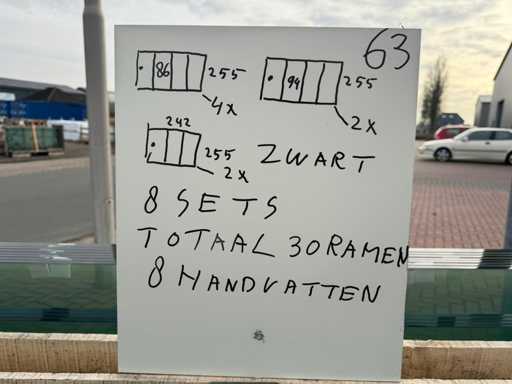 63
86 255
4x
94 255
2x
242
255
2x
ZWART
8 SETS
TOTAAL 30 RAMEN
8 HANDVATTEN